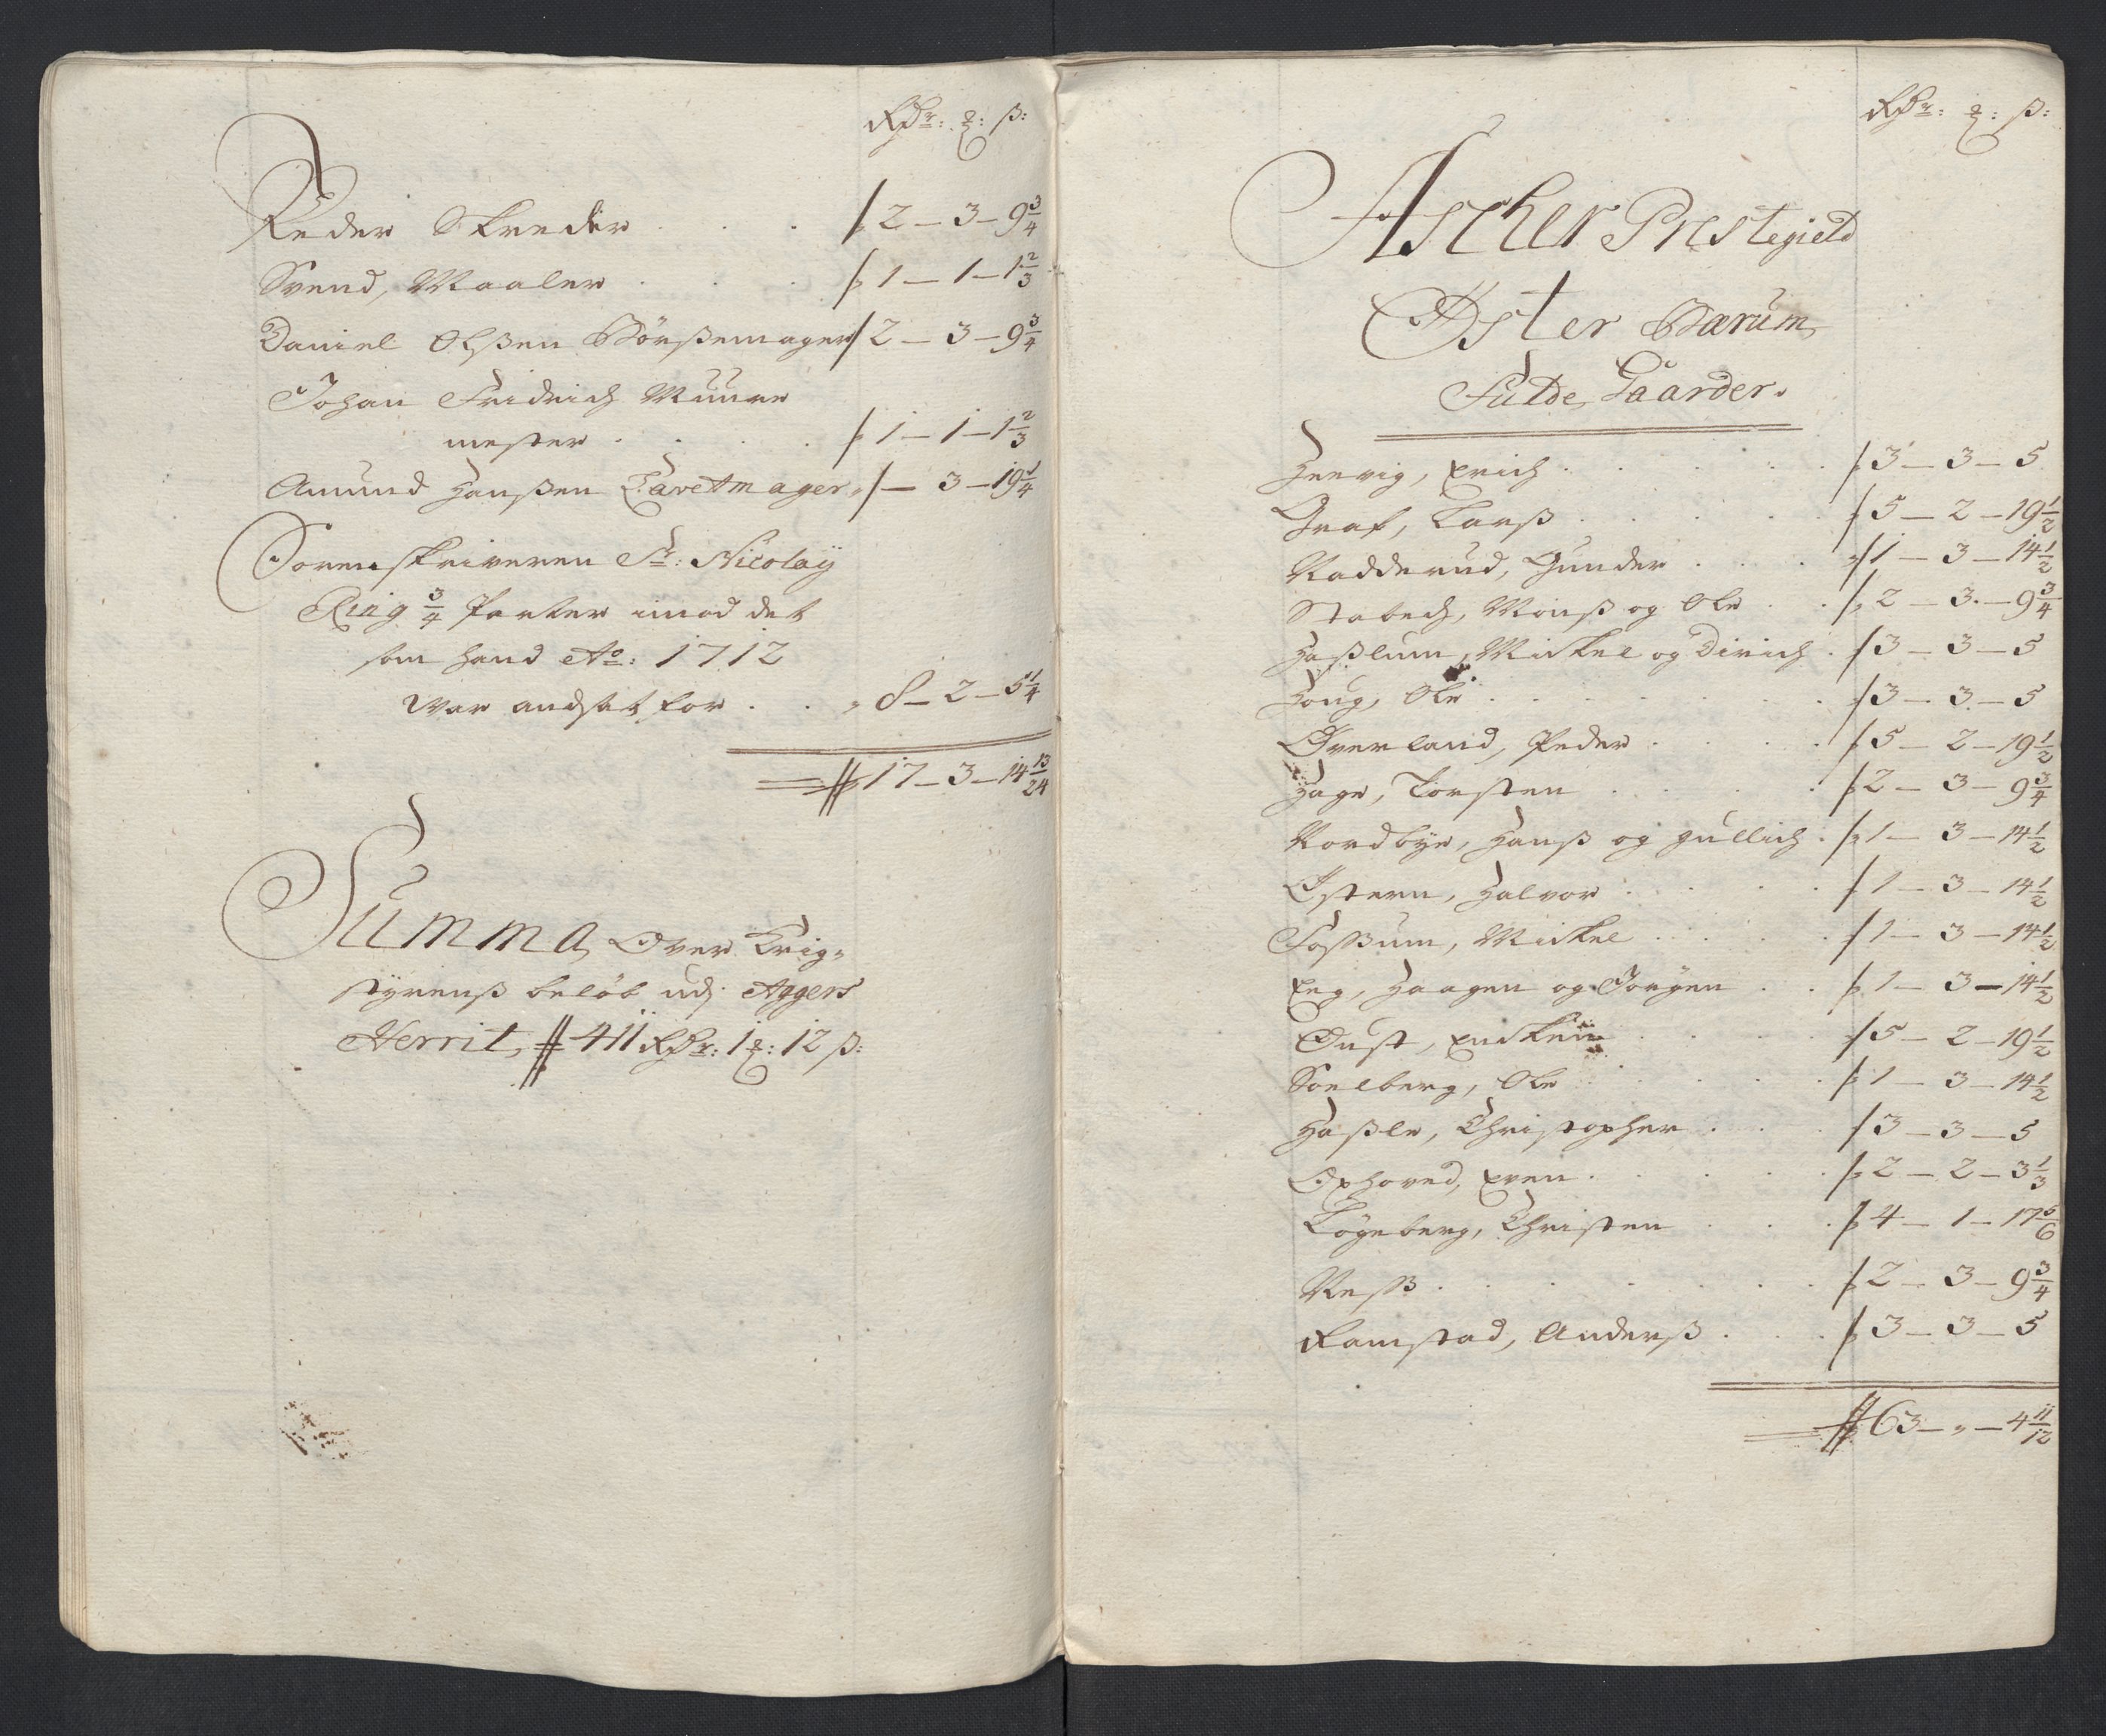 Rdr: ȝ: ß:
Peder Skreder . . . 2 – 3 – 9 3/4
Svend, Maaler . . . 1 – 1 – 1 2/3
Daniel Olßen Börßemager 2 – 3 – 9 3/4
Johan Fridrich Muure
mester . . . . 1 – 1 – 1 2/3
Amund Hanßen Pavetmager – 3 – 19 1/4
Sorenskriveren Sr: Nicolaÿ
Ring 3/4 Parter imod det
som hand Ao: 1712
War andsat for . . 8 – 2 – 5 1/4
17 – 3 – 14 13/24
Summa Over Krig-
styrenß beløb udj Aggers
Herrit, 411 Rdr: 1 ȝ: 12 ß:
Rdr: ȝ: ß:
Ascher Prestegield
Øster Bærum
Fulde Gaarder.
Jerrig, Erich . . . . 3 – 3 – 5
Graf, Larß . . . . 5 – 2 – 19 1/2
Nadderud, Gunder . . . 1 – 3 – 14 1/2
Stabech, Monß og Ole . . 2 – 3 – 9 3/4
Haßlum, Mickel og Dirich . 3 – 3 – 5
Houg, Ole . . . . 3 – 3 – 5
Øverland, Peder . . . . 5 – 2 – 19 1/2
Hage, Torsten . . . . 2 – 3 – 9 3/4
Nordbye, Hanß og Gullich . 1 – 3 – 14 1/2
Østern, Halvor . . . . 1 – 3 – 14 1/2
Foßum, Mickel . . . . 1 – 3 – 14 1/2
Eeg, Haagen og Jörgen . . 1 – 3 – 14 1/2
Oust, Enckken . . . . 5 – 2 – 19 1/2
Soelberg, Ole . . . . 1 – 3 – 14 1/2
Haßle, Christopher . . . 3 – 3 – 5
Oxhoved, Even . . . . 2 – 2 – 3 1/3
Løgeberg, Christen . . . 4 – 1 – 17 5/6
Neß . . . . . . 2 – 3 – 9 3/4
Ramstad, Anderß . . . 3 – 3 – 5
63 – „ – 4 11/12